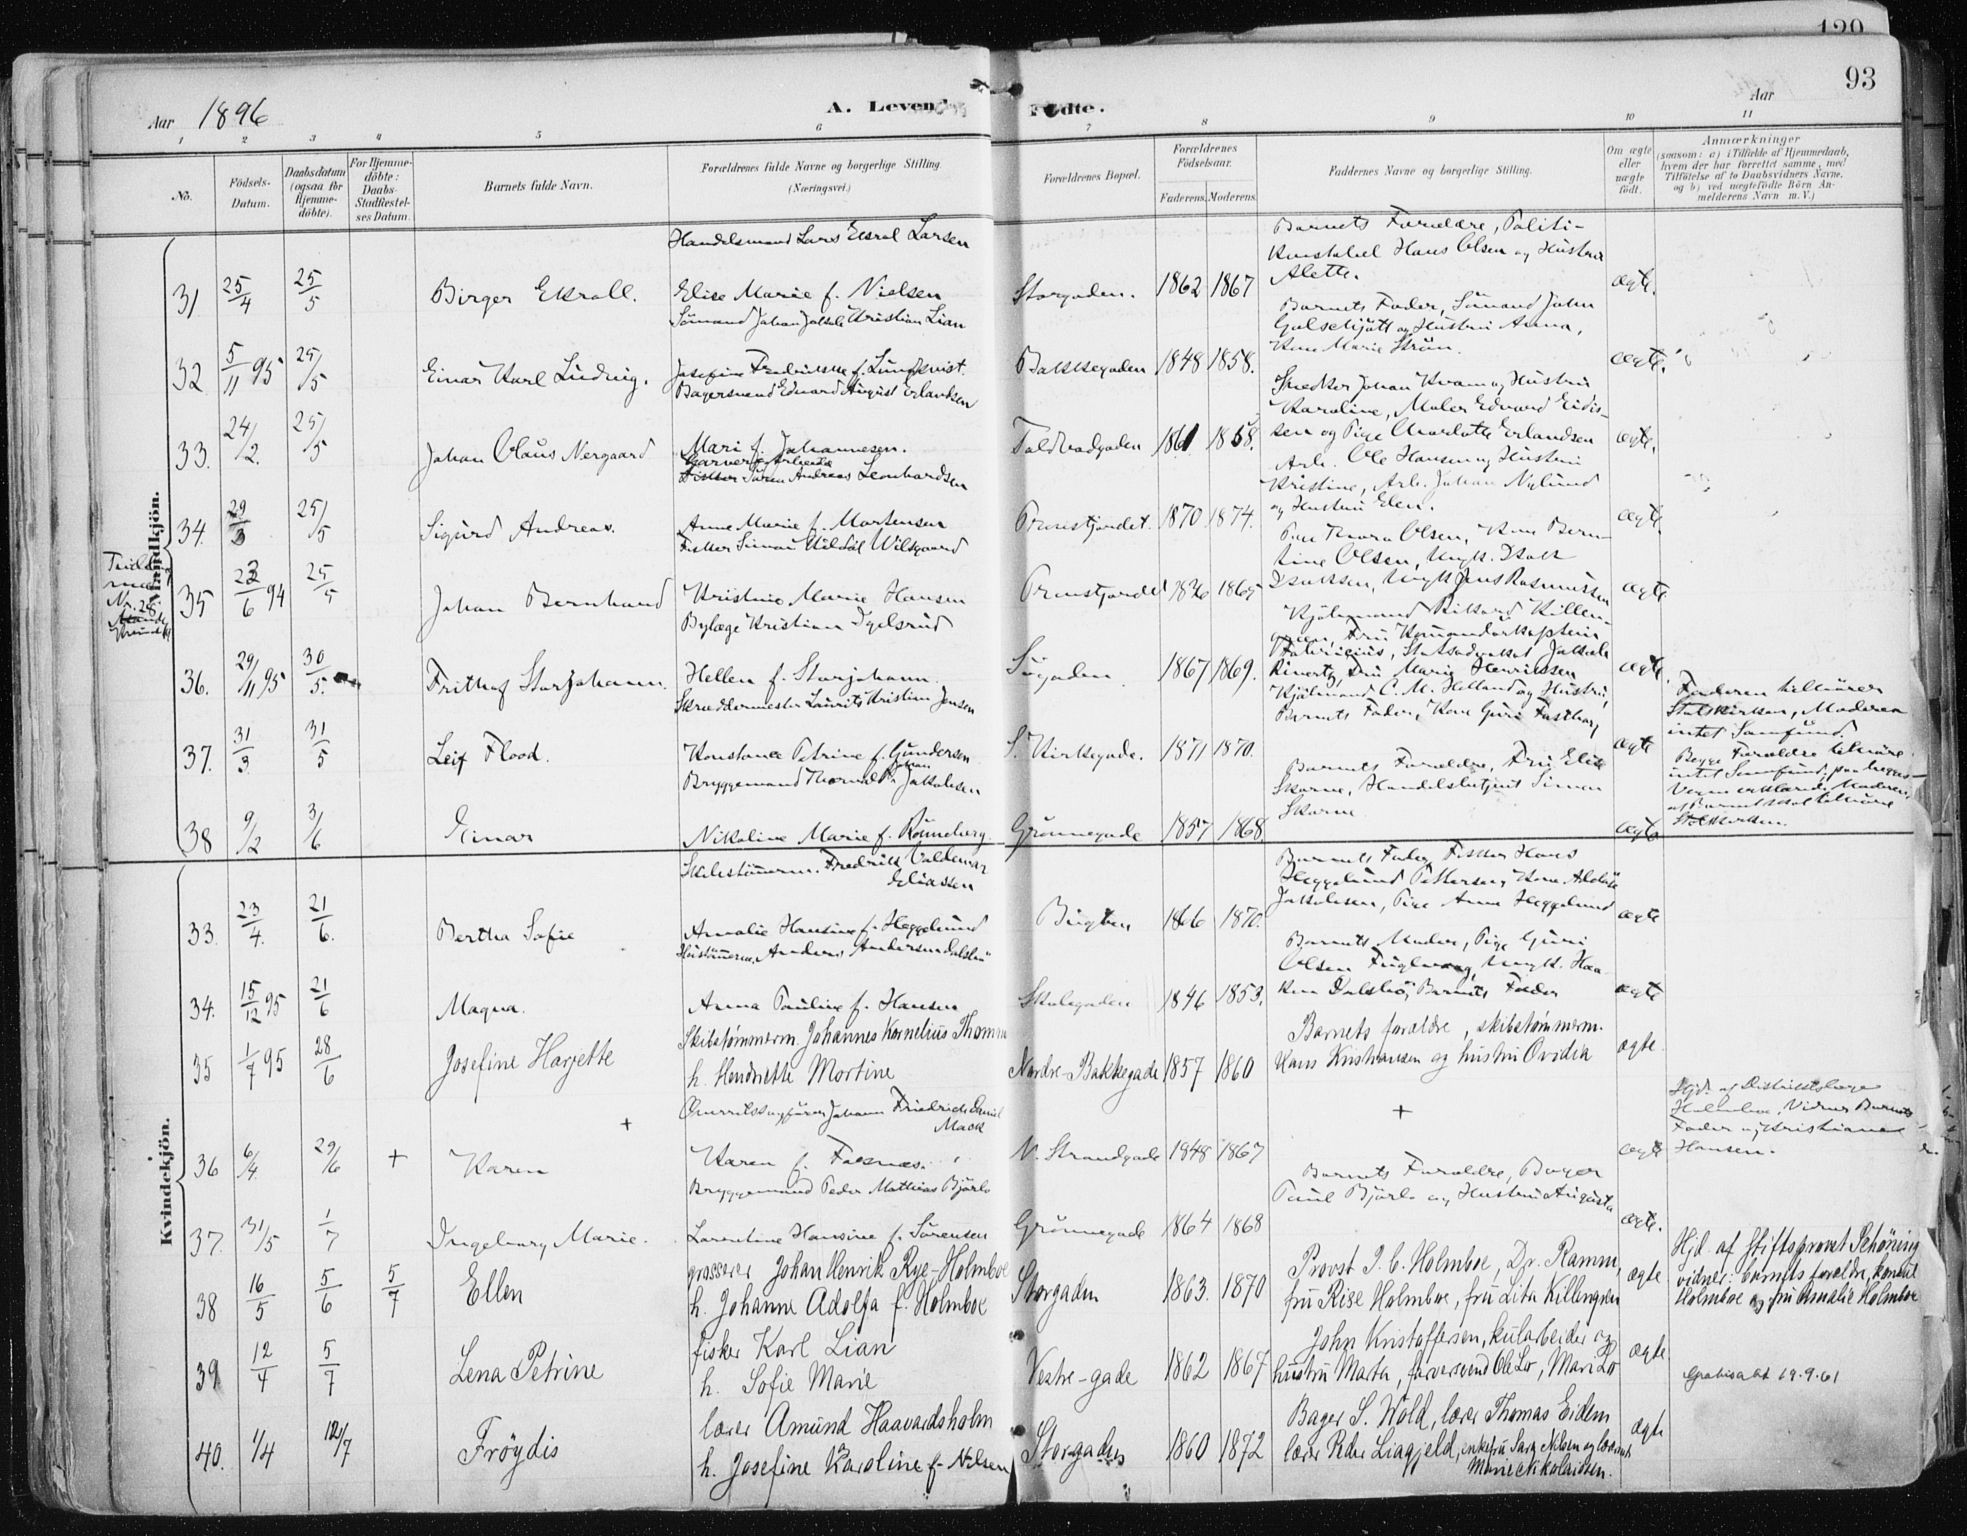 120
93
Aar 1896
A. Levende Fødte.
Aar
1 2 3 4 5 6 7 8 9 10 11
No.
Födsels-Datum.
Daabsdatum (ogsaa for Hjemme-döbte).
For Hjemme-döbte: Daabs-Stadfæstel-ses Datum.
Barnets fulde Navn.
Forældrenes fulde Navne og borgerlige Stilling. (Næringsvei.)
Forældrenes Bopæl.
Forældrenes Födselsaar.
Faderens. Moderens.
Faddernes Navne og borgerlige Stilling.
Om ægte eller uægte födt.
Anmærkninger (saasom: a) i Tilfælde af Hjemmedaab, hvem der har forrettet samme, med Tilföielse af to Daabsvidners Navne, og b) ved uægtefödte Börn An-melderens Navn m. V.)
Mandkjön.
Handelsmand Lars Ekroll Larsen
Barnets Forældre, Politi-
konstabel Hans Olsen og Hustru
Alette.
31 25/4 25/5 Birger Ekroll. Elise Marie f. Nielsen Storgaden. 1862 1867 ægte.
Sømand Johan Jakob Kristian Lian
Barnets Fader, Sömand John
og Hustru Anna,
Kone Marie Ström.
32 5/11 95 25/5 Einar Karl Ludvig. Josefine Fredrikke f. Lundkvist. Bakkegaden 1848 1858. ægte.
Bagersvend Edvard August Erlandsen
Snedker Johan Kvam og Hustru
Karoline, Maler Edvard Eidis-
sen og Pige Charlotte Erlandsen
33. 24/2. 25/5 Johan Olaus Nergaard Mari f. Johannesen. Toldbodgaden 1861. 1858. ægte.
Garveriarbeider
Fisker Søren Andreas Leonhardsen
Arb. Ole Hansen og Hustru
Kristine, Arb. Johan Nylund
og Hustru Elen.
34. 29/3 25/5 Sigurd Andreas. Anne Marie f. Mortensen Prœstjordet. 1870. 1874. ægte.
Fisker Simon Hildal Wilsgaard
Pige Thora Olsen, Kone Bern-
tine Olsen, Ungk. Isak
Isaksen, Ungk Jens Rasmussen
No. 28.
35 23/6 94 25/5 Johan Bernhard Kristine Marie Hansen Prœstjordet 1865 ægte
Bylæge Kristian Igelsrud
Kjöbmand Rikard Killen-
green, Fru Komandörkaptein
Fabricius, Statsadvokat Jakob
Rivertz, Fru Marie Henriksen
36. 29/11 95 30/5. Frithof Storjohann. Hellen f. Storjohann. Søgaden 1867 1869. ægte.
Skræddermester Laurits Kristian Jensen
Kjöbmand C. M. Holland og Hustru,
Barnets Fader, Kone Guri
Faderen tilhörer
Statskirken, Moderen
intet Samfund.
37. 31/3 31/5 Leif Flood. Konstance Petrine f. Gundersen S. Kirkegade. 1871 1870. ægte
Bryggemand Thorvald P. Johan Jakobsen
Barnets Forældre, Fru Elise
Skarne, Handelsbetjent Simon
Skarne
Begge Forældre tilhöre
intet Samfund, paa begges
Vegne erklærede Moderen,
at Barnet skal tilhöre
Statskirken.
38 9/2 3/6 Einar Nikoline Marie f. Rönneberg. Grönnegade 1857 1868. ægte
Kvindekjön.
Skibstömerm. Fredrik Valdemar
Eliassen
Barnets Fader, Fisker Hans
Heggelund Pettersen, Kone
Jakobsen, Pige Anne Heggelund
33. 23/4. 21/6. Bertha Sofie Amalie Hansine f. Heggelund 1866 1870. ægte
Hustömerm. Anders Andersen Dalsbö
Barnets Moder, Pige Guri
Olsen Fuglevaag, Ungk. Haa-
kon Dalsbö, Barnets Fader
34. 15/12 95 21/6 Magna. Anna Pauline f. Hansen Skolegaden 1846 1853. ægte
Skibstømmerm. Johannes Kornelius Thom
Barnets forældre, skibstømmerm.
35 1/7 95 28/6 Josefine Harjette h. Hendrikke Mortine Nordre-Bakkegade 1857 1860 Hans Kristiansen og hustru Ovidia ægte.
Overretssagfører Johann Friedrich Daniel
Mack
+
+
Hjd. af Distriktslæge
Holmboe, Vidner Barnets
Fader og Kristiane
Hansen.
36 6/4. 29/6 + Karen Karen f. Fosnæs. N. Strandgade 1848 1867 ægte
Bryggemand Peder Mathias Bjørlo
Barnets Forældre, Bager
Paul Bjørlo og Hustru Augusta
37. 31/5 1/7 Ingeborg Marie. Lorentine Hansine f. Sørensen Grönnegade 1864 1868 ægte.
grosserer Johan Henrik Rye-Holmboe
Provst I. C. Holmboe, Dr. Ramm,
Hjd. af Stiftsprovst Schöning
vidner: barnets forældre, konsul
Holmboe og fru Amalie Holmboe
38 16/5 5/6 5/7 Ellen h. Johanne Adolfa f. Holmboe Storgaden 1863. 1870 fru Rise Holmboe, fru Lita Killengren ægte
fisker Karl Lian
John Kristoffersen, kularbeider og
39. 12/4 5/7 Lena Petrine h. Sofie Marie Vestre-gade 1862 1867 hustru Marta, farversvend Ole Lo, Mari Lo ægte
Gratisatt 19.9.61
lærer Amund Haavardsholm
Bager S. Wold, lærer Thomas Eidem
40. 1/4 12/7 Frøydis h. Josefine Karoline f. Nilsen Storgaden 1860 1872 lærer Peder Liagjeld, enkefru Sara Nilsen og
Marie Nikolaisen. ægte